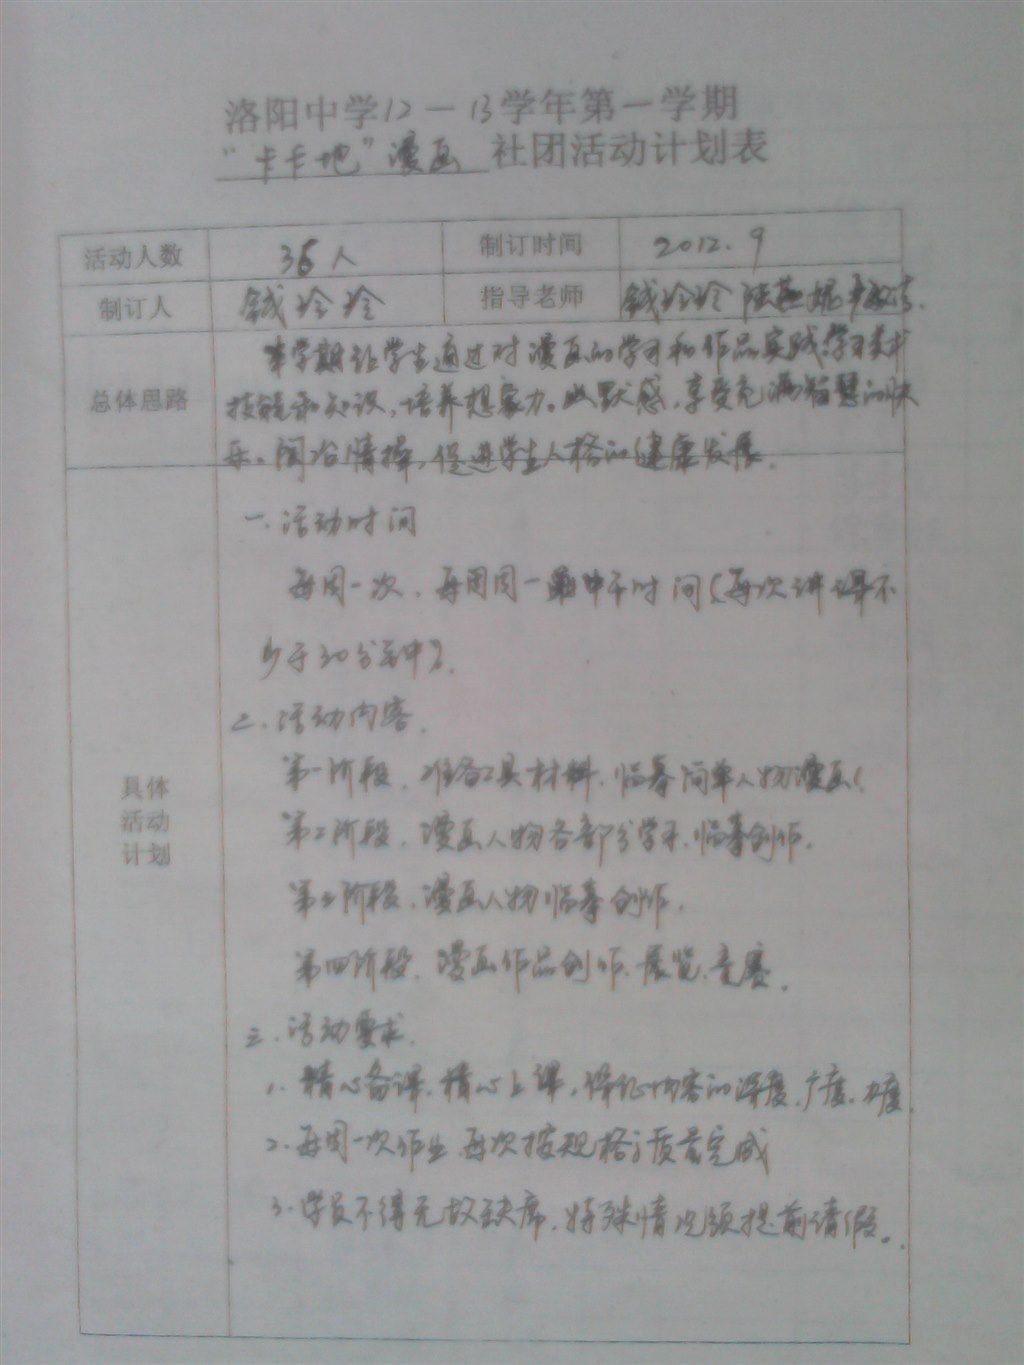 洛阳中学12-13学年第一学期
"卡卡地"漫画 社团活动计划表
活动人数 36人 制订时间 2012.9
制订人 钱玲玲 指导老师 钱玲玲 陆燕娓
总体思路
本学期让学生通过对漫画的学习和作品实践,学习美术
技能和知识,培养想象力、幽默感,享受充满智慧的快
乐。陶冶情操,促进学生人格的健康发展.
具体
活动
计划
一.活动时间
每周一次.每周周一中午时间(每次讲课不
少于30分钟).
二.活动内容.
第一阶段.准备工具材料.临摹简单人物漫画
第二阶段.漫画人物各部分学习.临摹创作.
第三阶段.漫画人物临摹创作.
第四阶段.漫画作品创作.展览.竞赛.
三.活动要求.
1.精心备课.精心上课.保证内容的深度.广度.
2.每周一次作业 每次按规格、质量完成
3.学员不得无故缺席.特殊情况须提前请假。